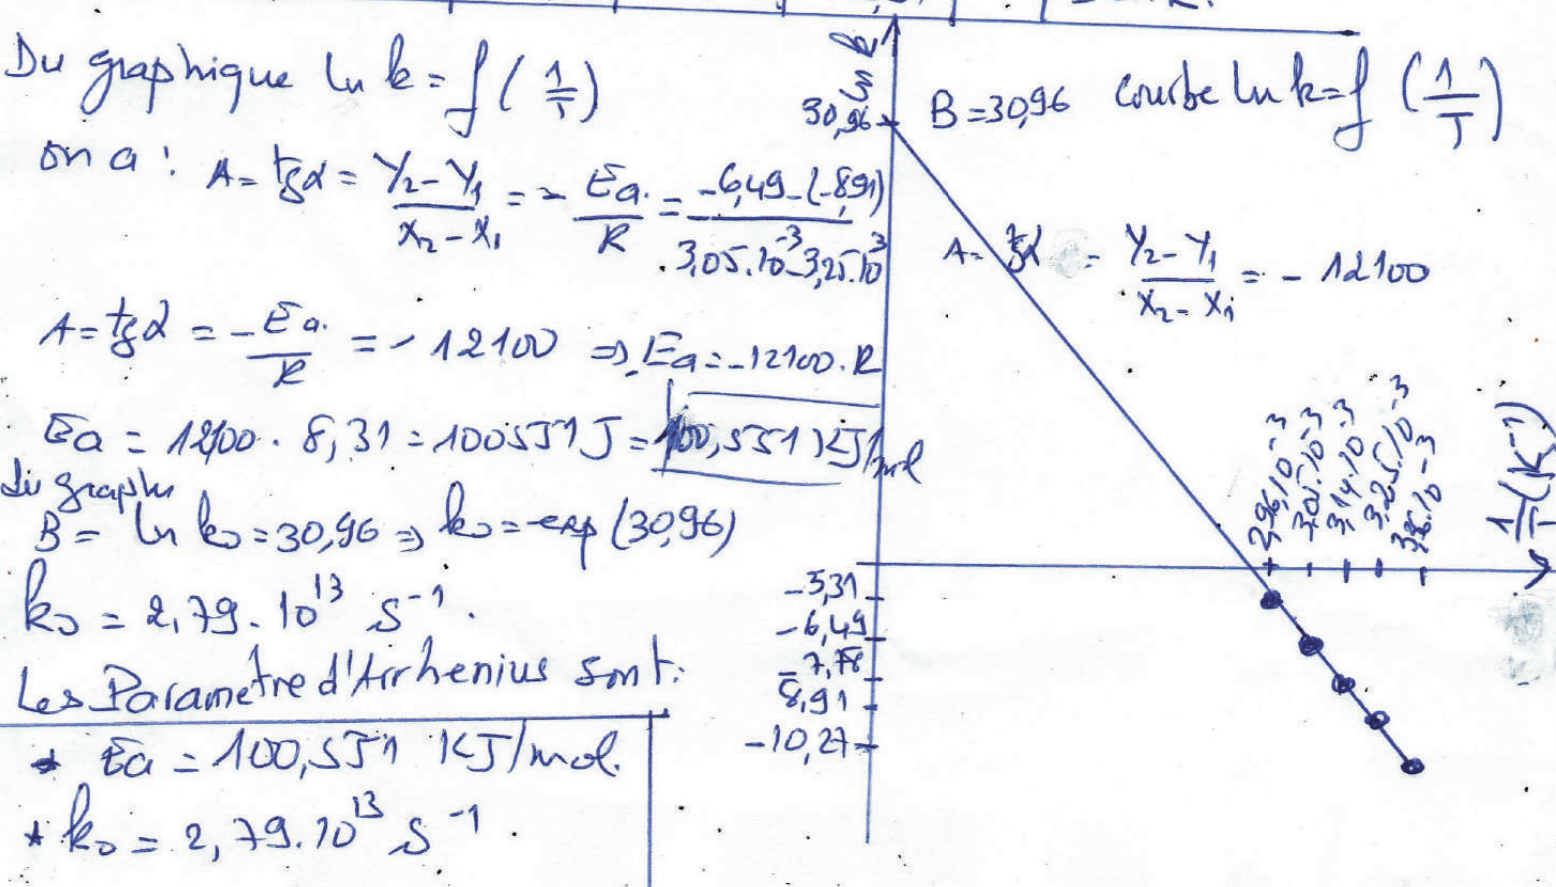 Du graphique ln k = f(1/T)
on a : A = tgα = (Y₂ - Y₁)/(X₂ - X₁) = - Ea/R = (-6,49 - (-8,91))/(3,05.10⁻³ - 3,25.10⁻³)
A = tgα = -Ea/R = - 12100 ⇒ Ea = -12100.R
Ea = 12100 . 8,31 = 100551 J = 100,551 KJ/mol
du graphe
B = ln k₀ = 30,96 ⇒ k₀ = exp(30,96)
k₀ = 2,79.10¹³ s⁻¹.
Les Parametre d'Arrhenius sont:
* Ea = 100,551 KJ/mol.
* k₀ = 2,79.10¹³ s⁻¹.
ln k
30,96
B = 30,96 courbe ln k = f(1/T)
A = tgα = (Y₂ - Y₁)/(X₂ - X₁) = - 12100
2,96.10⁻³
3,05.10⁻³
3,14.10⁻³
3,25.10⁻³
3,36.10⁻³
1/T (K⁻¹)
-5,31
-6,49
-7,78
8,91
-10,27